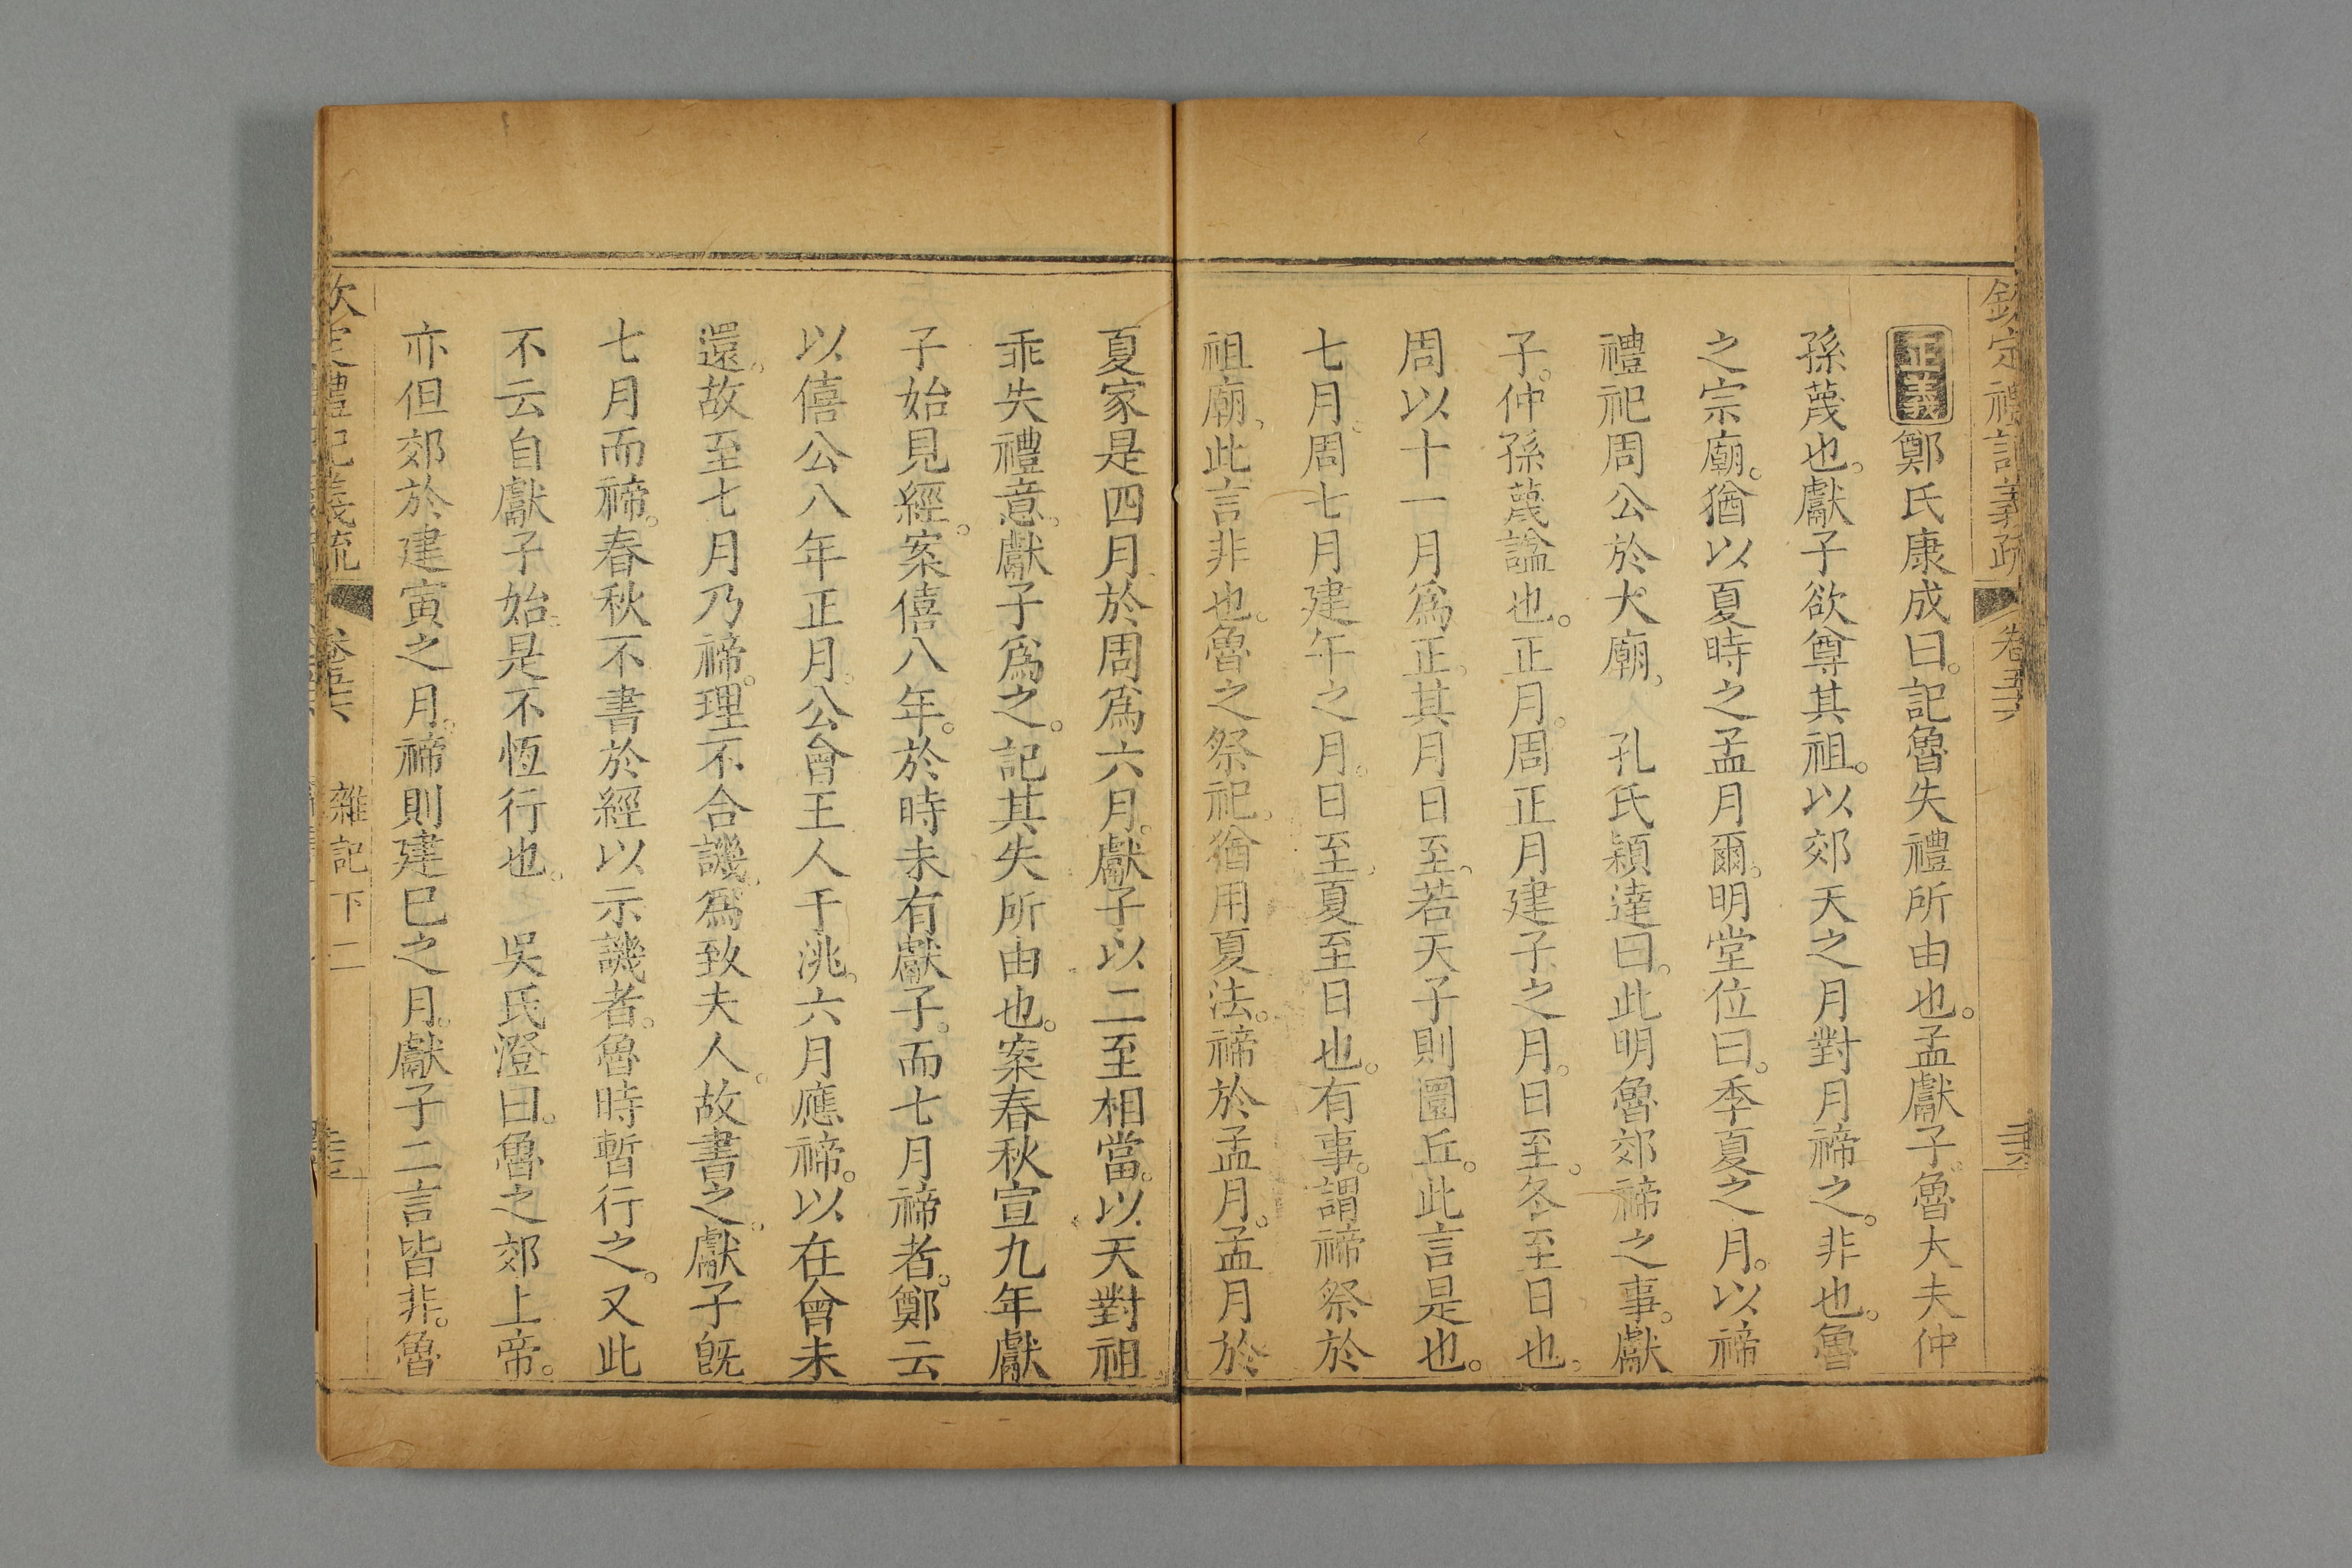 欽定禮記義疏 卷五六
正義鄭氏康成曰。記魯失禮所由也。孟獻子。魯大夫仲
孫蔑也。獻子欲尊其祖。以郊天之月對月禘之。非也。魯
之宗廟。猶以夏時之孟月爾。明堂位曰。季夏之月。以禘
禮祀周公於大廟。 孔氏穎達曰。此明魯郊禘之事。獻
子。仲孫蔑諡也。正月。周正月建子之月。日至。冬至日也。
周以十一月爲正。其月日至。若天子則圜丘。此言是也。
七月。周七月建午之月。日至。夏至日也。有事。謂禘祭於
祖廟。此言非也。魯之祭祀。猶用夏法。禘於孟月。孟月於
夏家是四月於周爲六月。獻子以二至相當。以天對祖
乖失禮意。獻子爲之。記其失所由也。案春秋宣九年獻
子始見經。案僖八年。於時未有獻子。而七月禘者。鄭云
以僖公八年正月。公會王人于洮。六月應禘。以在會未
還。故至七月乃禘。理不合譏。爲致夫人。故書之。獻子旣
七月而禘。春秋不書於經以示譏者。魯時暫行之。又此
不云自獻子始。是不恆行也。 吳氏澄曰。魯之郊上帝。
亦但郊於建寅之月。禘則建巳之月。獻子二言皆非。魯
欽定禮記義疏 卷五六 雜記下二